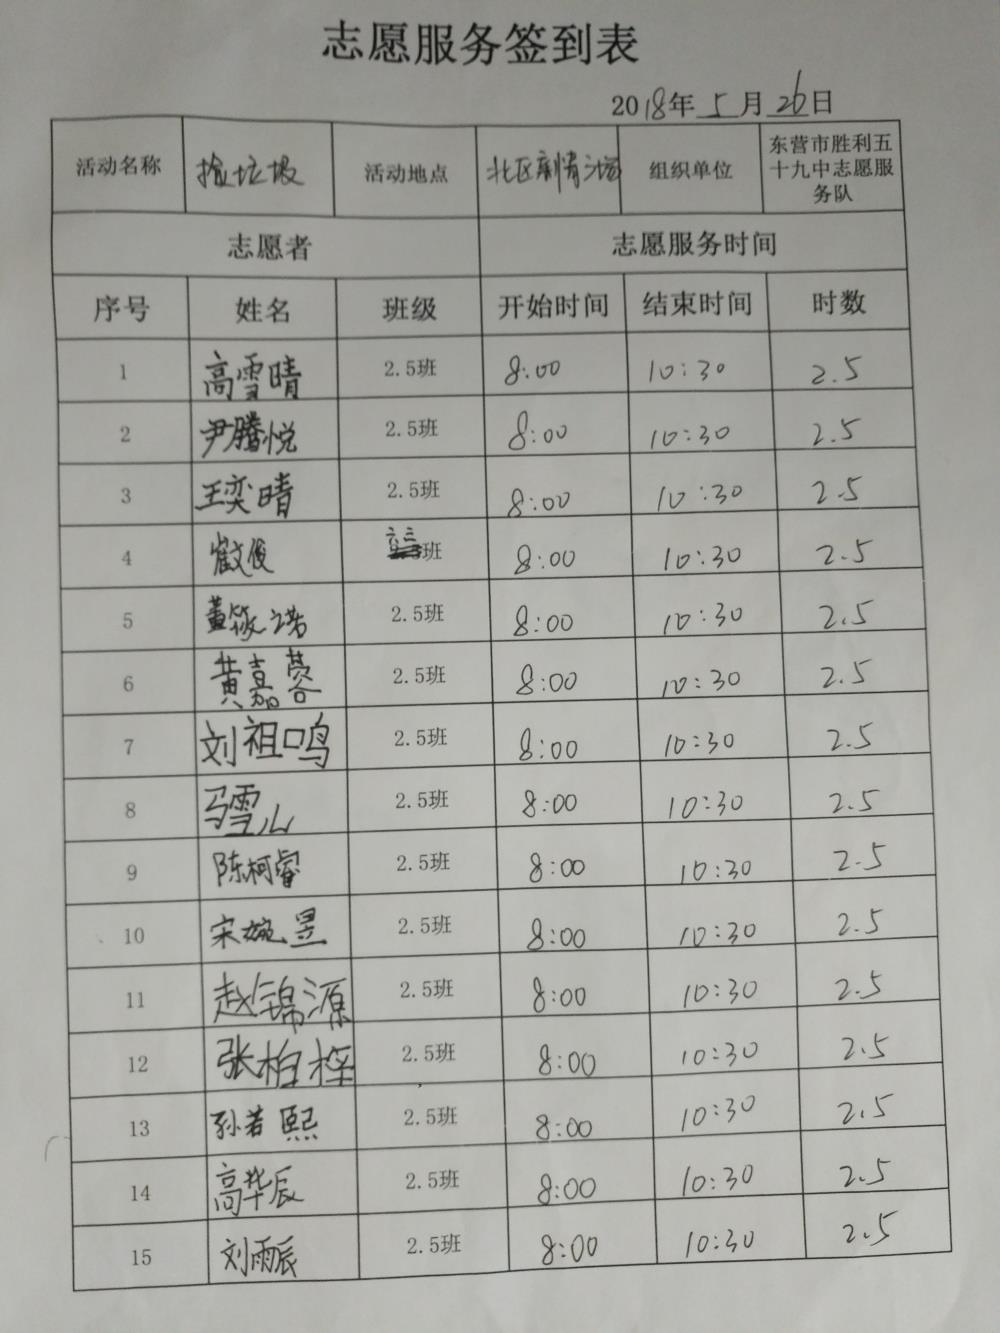 志愿服务签到表
2018年 5 月 26 日
活动名称 捡垃圾 活动地点 北区 组织单位 东营市胜利五十九中志愿服务队
志愿者 志愿服务时间
序号 姓名 班级 开始时间 结束时间 时数
1 高雪晴 2.5班 8:00 10:30 2.5
2 尹腾悦 2.5班 8:00 10:30 2.5
3 王奕晴 2.5班 8:00 10:30 2.5
4 崔文俊 六三班 8:00 10:30 2.5
5 董筱诺 2.5班 8:00 10:30 2.5
6 黄嘉蓉 2.5班 8:00 10:30 2.5
7 刘祖鸣 2.5班 8:00 10:30 2.5
8 马雪儿 2.5班 8:00 10:30 2.5
9 陈柯睿 2.5班 8:00 10:30 2.5
10 宋婉昱 2.5班 8:00 10:30 2.5
11 赵锦源 2.5班 8:00 10:30 2.5
12 张柏桎 2.5班 8:00 10:30 2.5
13 孙若熙 2.5班 8:00 10:30 2.5
14 高华辰 2.5班 8:00 10:30 2.5
15 刘雨辰 2.5班 8:00 10:30 2.5